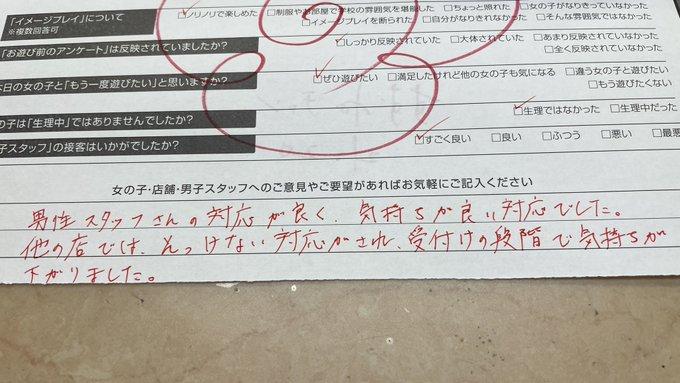 「イメージプレイ」について
※複数回答可
☑ノリノリで楽しめた □制服やお部屋で学校の雰囲気を堪能した □ちょっと照れた □女の子がなりきっていなかった
□イメージプレイを断られた □自分がなりきれなかった □そんな雰囲気ではなかった
「お遊び前のアンケート」は反映されていましたか?
☑しっかり反映されていた □大体されていた □あまり反映されていなかった
□全く反映されていなかった
本日の女の子と「もう一度遊びたい」と思いますか?
☑ぜひ遊びたい □満足したけれど他の女の子も気になる □違う女の子と遊びたい
□もう遊びたくない
の子は「生理中」ではありませんでしたか?
☑生理ではなかった □生理中だった
子スタッフ」の接客はいかがでしたか?
☑すごく良い □良い □ふつう □悪い □最悪
女の子・店舗・男子スタッフへのご意見やご要望があればお気軽にご記入ください
男性スタッフさんの対応が良く、気持ちが良い対応でした。
他の店では、そっけない対応がされ、受付けの段階で気持ちが
下がりました。